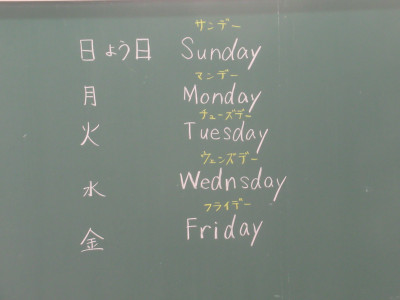 サンデー
日ょう日 Sunday
マンデー
月 Monday
チューズデー
火 Tuesday
ウェンズデー
水 Wednsday
フライデー
金 Friday